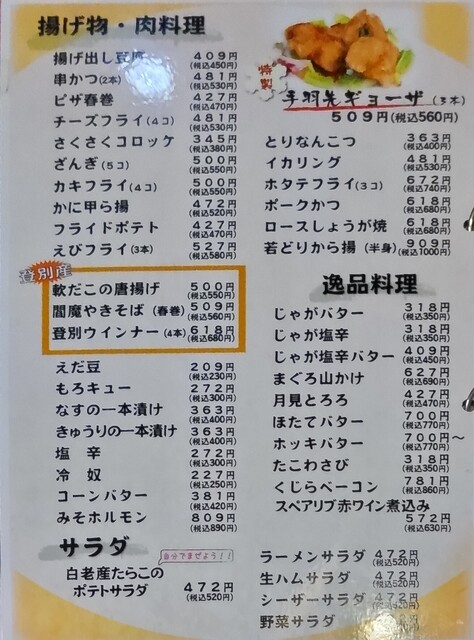 揚げ物・肉料理
揚げ出し豆腐 409円 (税込450円)
串かつ(2本) 481円 (税込530円)
ピザ春巻 427円 (税込470円)
チーズフライ(4コ) 481円 (税込530円)
さくさくコロッケ 345円 (税込380円)
ざんぎ(5コ) 500円 (税込550円)
カキフライ(4コ) 500円 (税込550円)
かに甲ら揚 472円 (税込520円)
フライドポテト 427円 (税込470円)
えびフライ(3本) 527円 (税込580円)
登別産
軟だこの唐揚げ 500円 (税込550円)
閻魔やきそば(春巻) 509円 (税込560円)
登別ウインナー(4本) 618円 (税込680円)
えだ豆 209円 (税込230円)
もろキュー 272円 (税込300円)
なすの一本漬け 363円 (税込400円)
きゅうりの一本漬け 363円 (税込400円)
塩辛 272円 (税込300円)
冷奴 227円 (税込250円)
コーンバター 381円 (税込420円)
みそホルモン 809円 (税込890円)
サラダ
自分でまぜよう!!
白老産たらこの
ポテトサラダ 472円 (税込520円)
特製
手羽先ギョーザ(3本)
509円(税込560円)
とりなんこつ 363円 (税込400円)
イカリング 481円 (税込530円)
ホタテフライ(3コ) 672円 (税込740円)
ポークかつ 618円 (税込680円)
ロースしょうが焼 618円 (税込680円)
若どりから揚(半身) 909円 (税込1000円)
逸品料理
じゃがバター 318円 (税込350円)
じゃが塩辛 318円 (税込350円)
じゃが塩辛バター 409円 (税込450円)
まぐろ山かけ 627円 (税込690円)
月見とろろ 427円 (税込470円)
ほたてバター 700円 (税込770円)
ホッキバター 700円〜 (税込770円)
たこわさび 318円 (税込350円)
くじらベーコン 781円 (税込860円)
スペアリブ赤ワイン煮込み
572円 (税込630円)
ラーメンサラダ 472円 (税込520円)
生ハムサラダ 472円 (税込520円)
シーザーサラダ 472円 (税込520円)
野菜サラダ 472円 (税込520円)